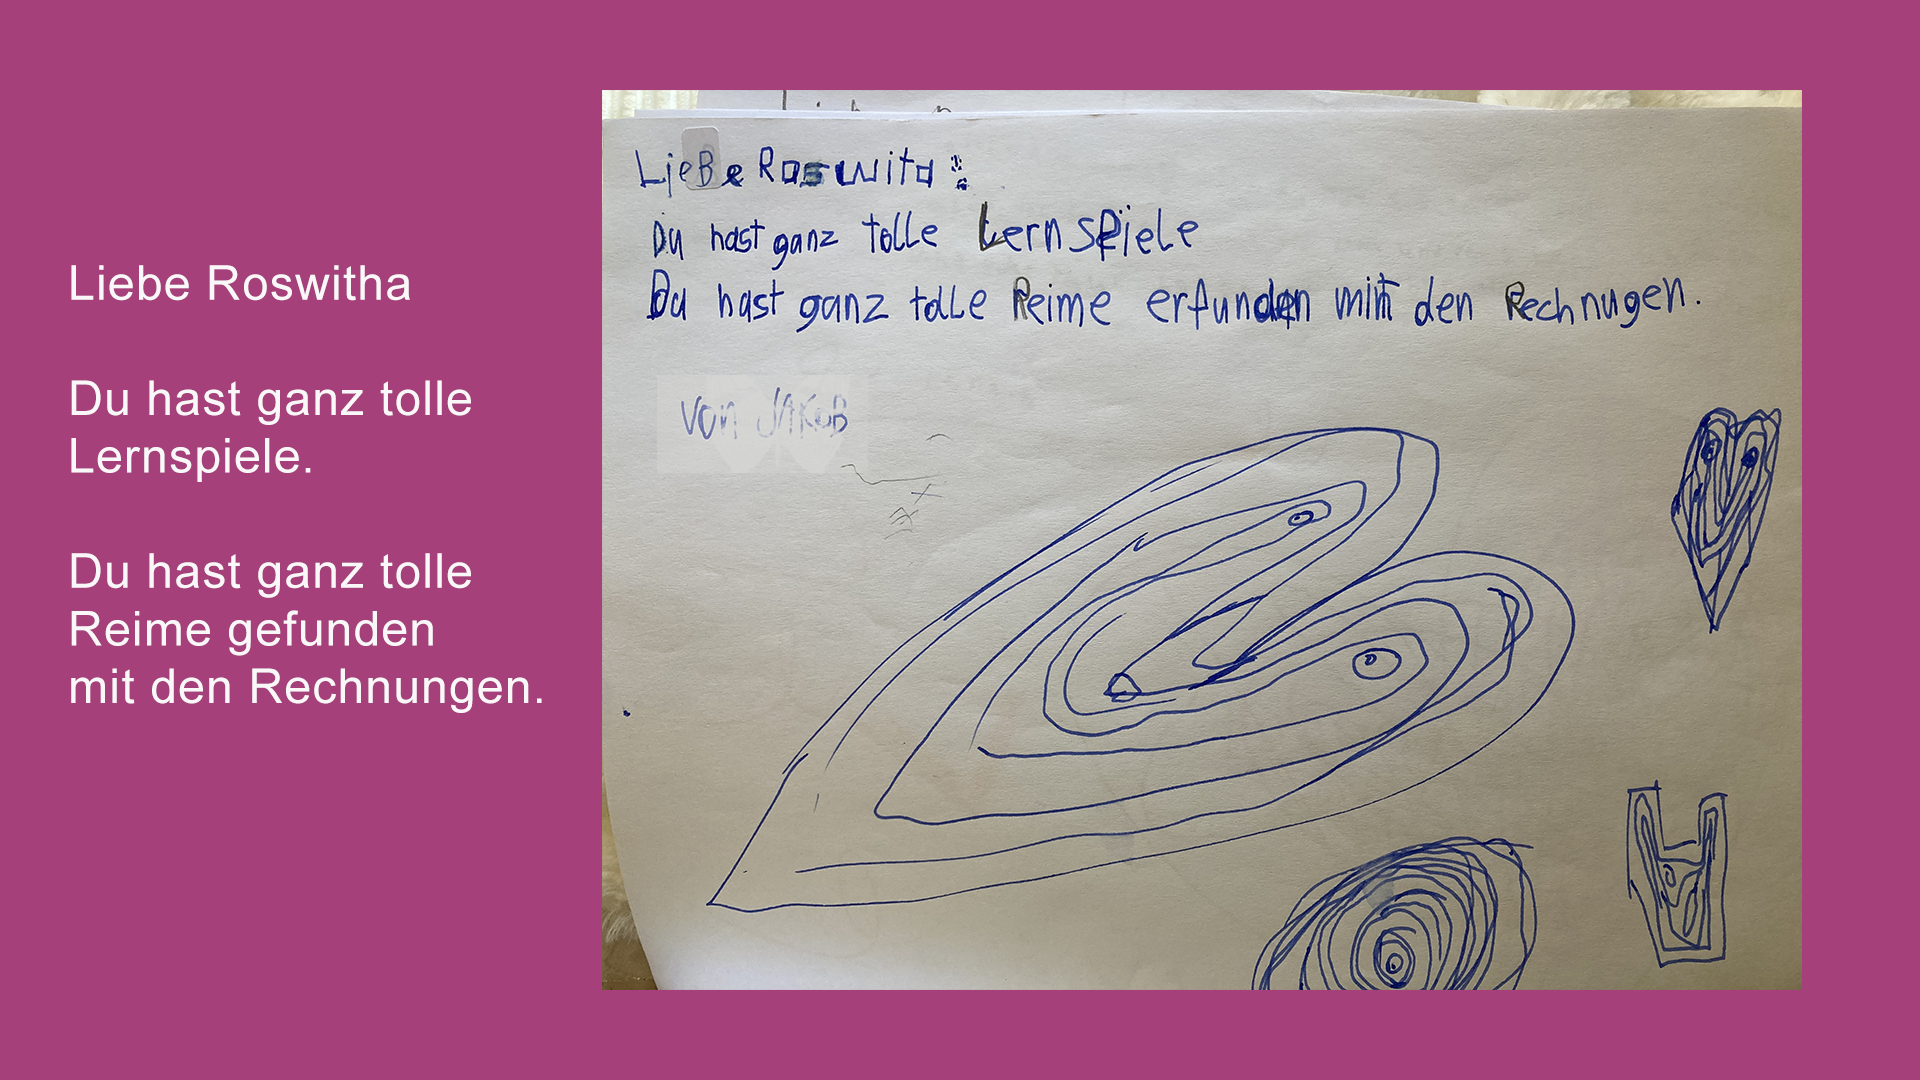 Liebe Roswitha
Du hast ganz tolle
Lernspiele.
Du hast ganz tolle
Reime gefunden
mit den Rechnungen.
LieBe Roswita:
Du hast ganz tolle LernsPiele
Du hast ganz tolle Reime erfunden mit den Rechnugen.
von JAKOB